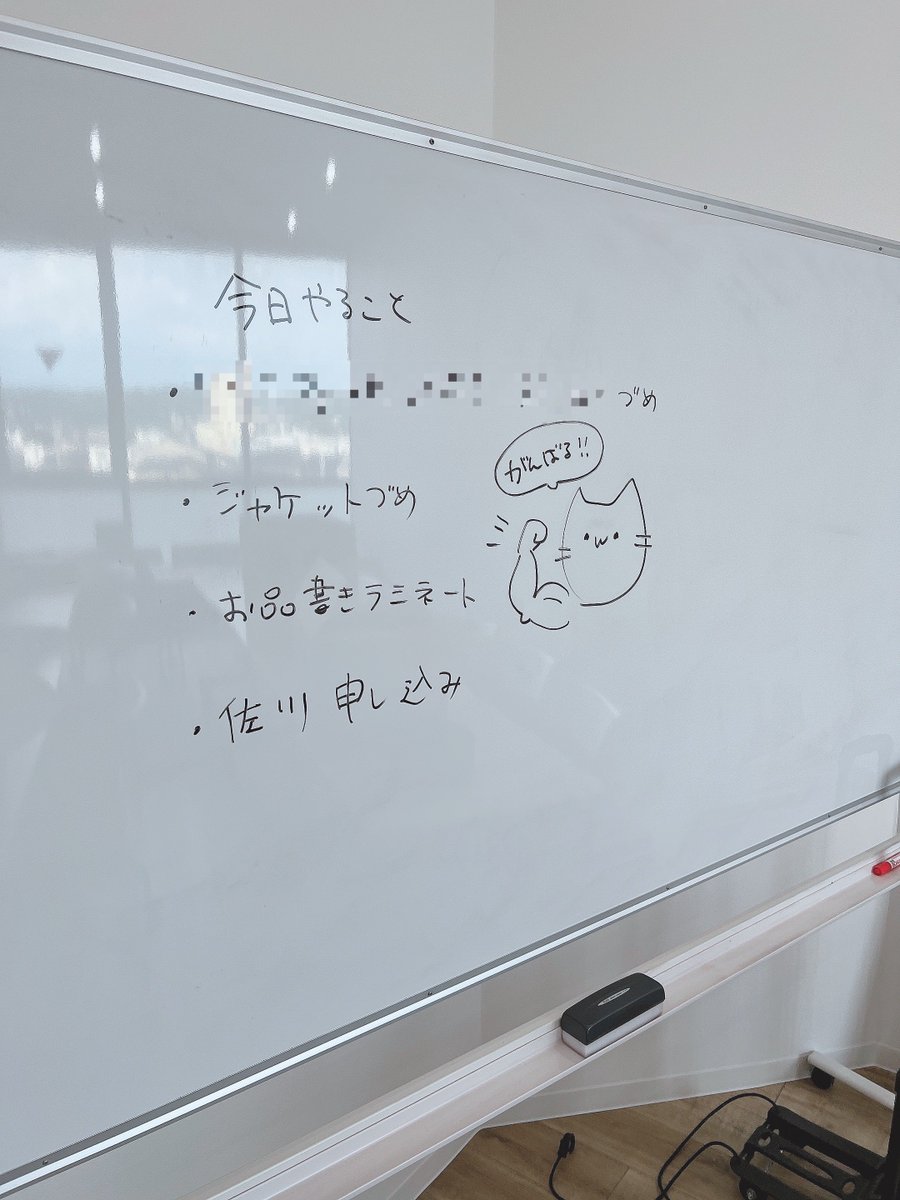 今日やること
・づめ
がんばる!!
・ジャケットづめ
・お品書きラミネート
・佐川 申し込み